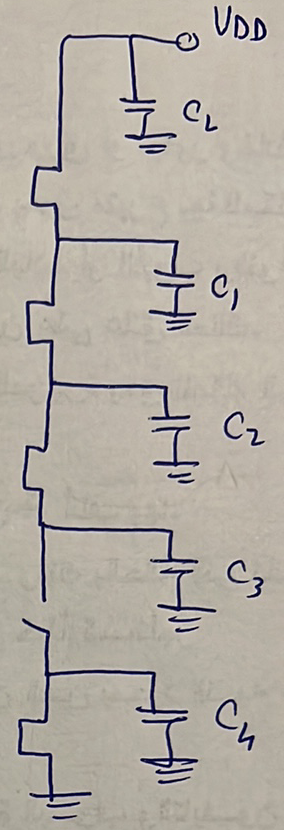 VDD
CL
C1
C2
C3
C4